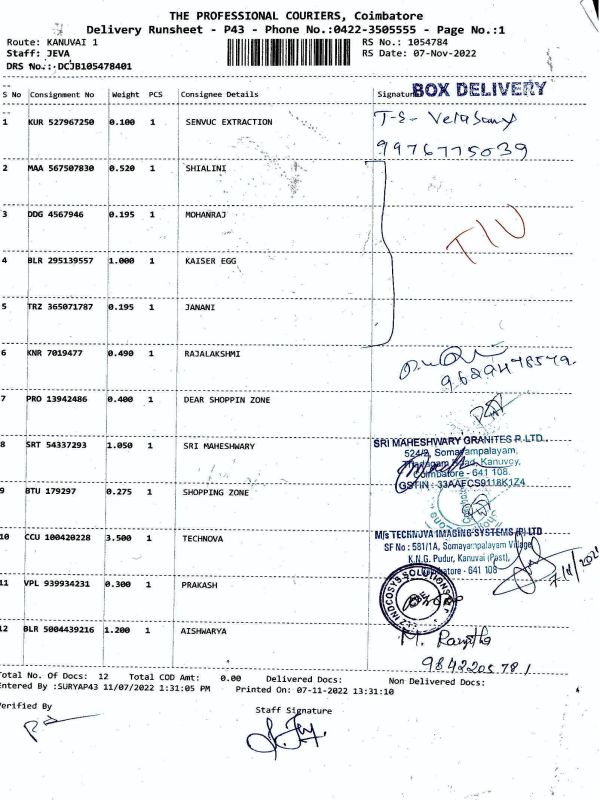 THE PROFESSIONAL COURIERS, Coimbatore
Delivery Runsheet - P43 - Phone No.:0422-3505555 - Page No.:1
Route: KANUVAI 1 RS No.: 1054784
Staff: JEVA RS Date: 07-Nov-2022
DRS No.: DCJB105478401
S No Consignment No Weight PCS Consignee Details Signature
BOX DELIVERY
1 KUR 527967250 0.100 1 SENVUC EXTRACTION
9976775039
2 MAA 567507830 0.520 1 SHIALINI
3 DDG 4567946 0.195 1 MOHANRAJ
T/U
4 BLR 295139557 1.000 1 KAISER EGG
5 TRZ 365071787 0.195 1 JANANI
6 KNR 7019477 0.490 1 RAJALAKSHMI
7 PRO 13942486 0.400 1 DEAR SHOPPIN ZONE
8 SRT 54337293 1.050 1 SRI MAHESHWARY
SRI MAHESHWARY GRANITES P. LTD.
524/2, Somayampalayam,
Thadagam Road, Kanuvoy,
Coimbatore - 641 108.
GSTIN : 33AAFCS9118K1Z4
9 BTU 179297 0.275 1 SHOPPING ZONE
10 CCU 100420228 3.500 1 TECHNOVA
M/s TECHNOVA IMAGING SYSTEMS (P) LTD
SF No : 581/1A, Somayampalayam Village
K.N.G. Pudur, Kanuvai (Post),
Coimbatore - 641 108
11 VPL 939934231 0.300 1 PRAKASH
12 BLR 5004439216 1.200 1 AISHWARYA
9842205781
Total No. Of Docs: 12 Total COD Amt: 0.00 Delivered Docs: Non Delivered Docs:
Entered By :SURYAP43 11/07/2022 1:31:05 PM Printed On: 07-11-2022 13:31:10
Verified By Staff Signature